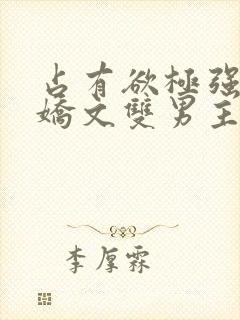 占有欲極强
嬌文雙男主
李厚霖